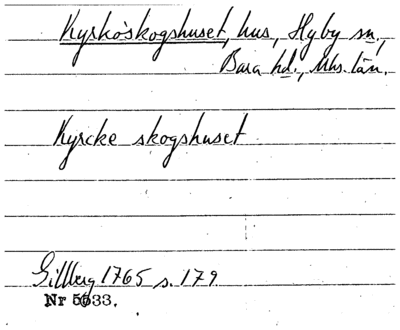 Kyrkoskogshuset, hus, Hyby sn,
Bara hd., Mhs. län.
Kyrcke skogshuset
Gillberg 1765 s. 179
Nr 5033.